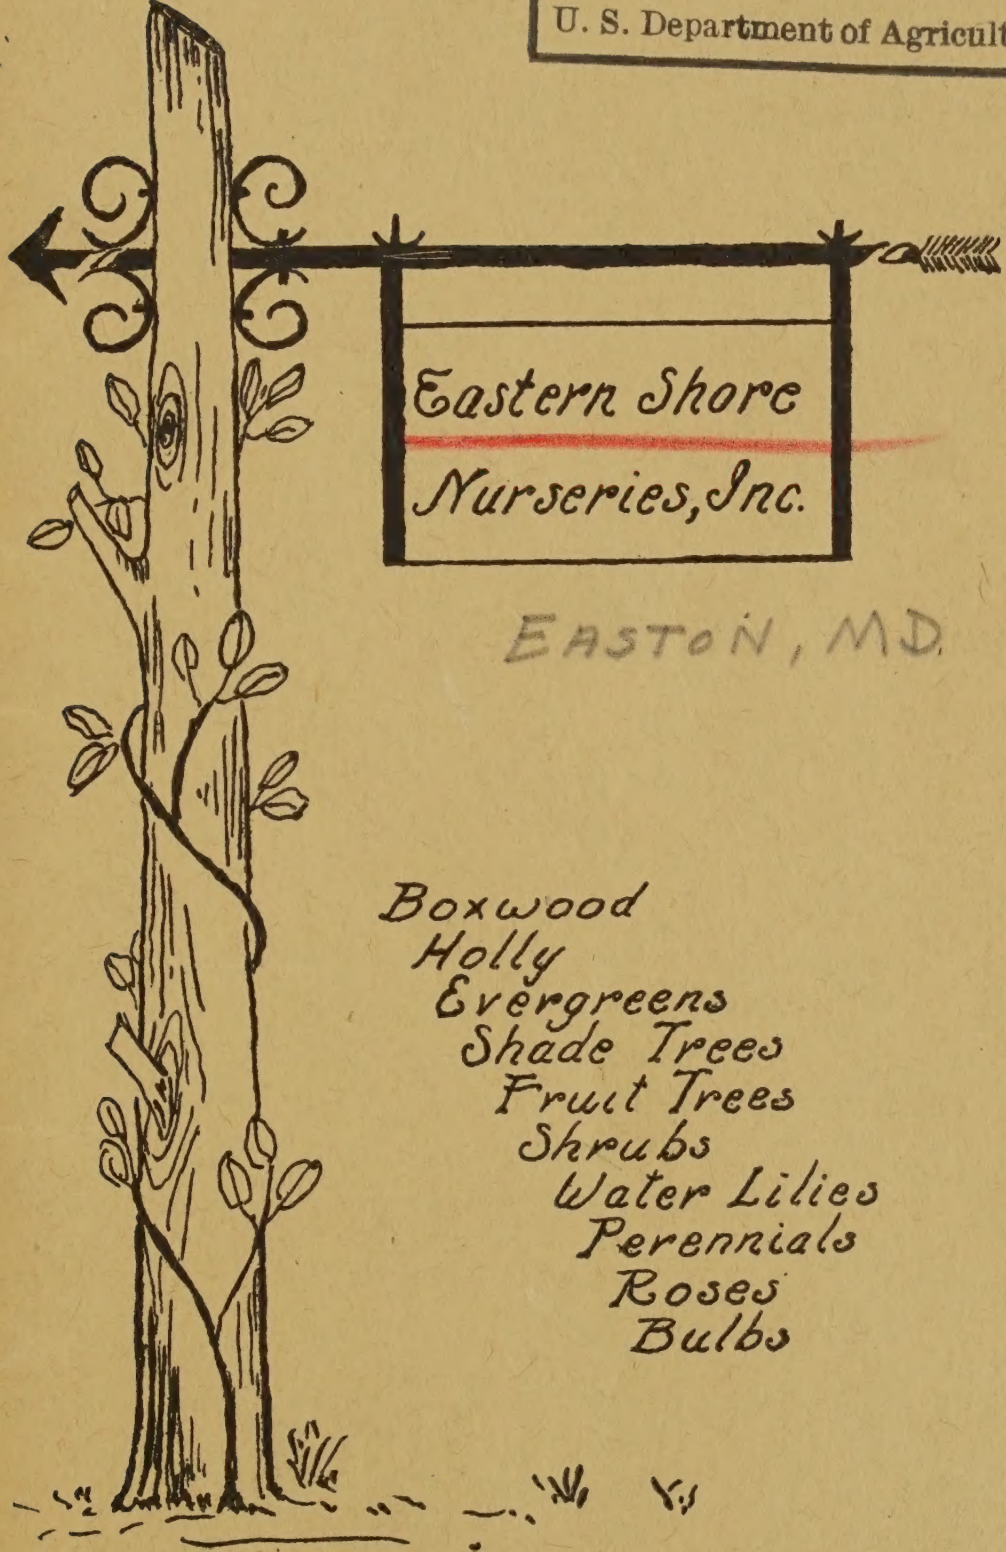 U. S. Department of Agricult
Eastern Shore
Nurseries, Inc.
EASTON, MD.
Boxwood
Holly
Evergreens
Shade Trees
Fruit Trees
Shrubs
Water Lilies
Perennials
Roses
Bulbs